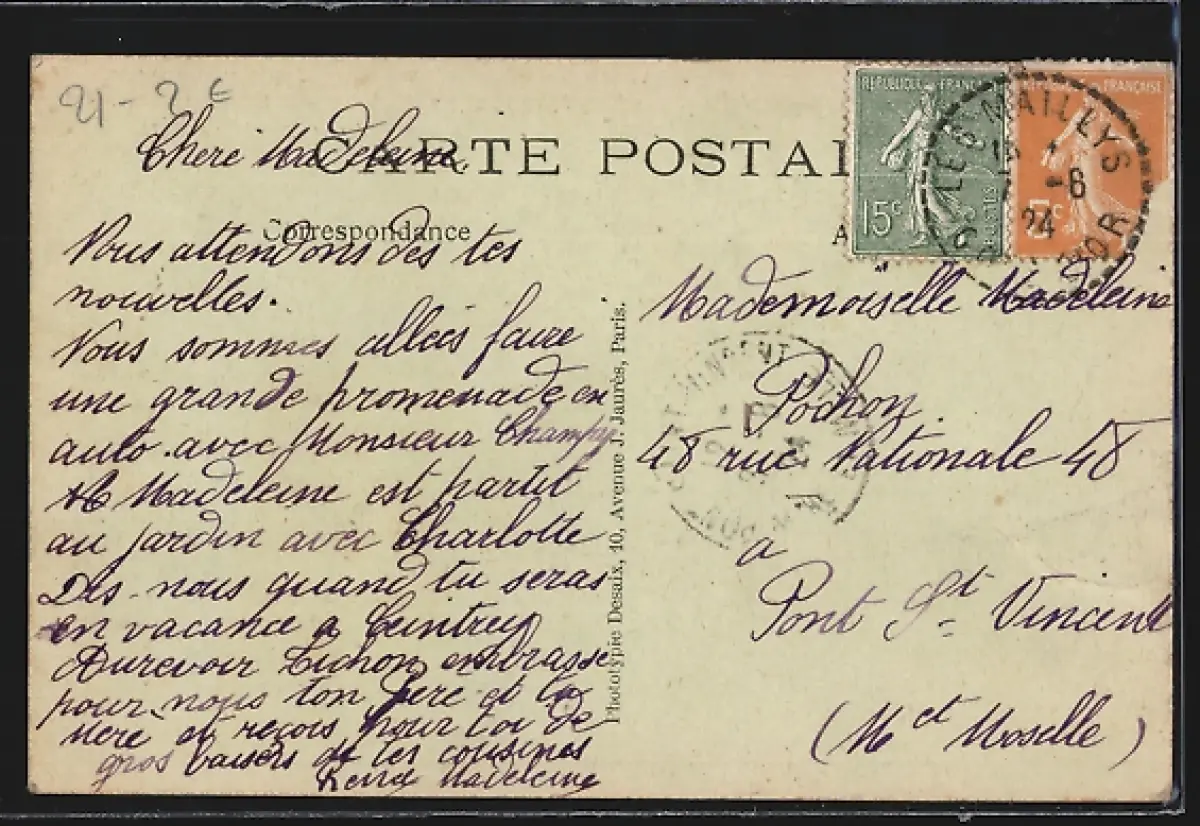 21 - 2 €
Chere Madeleine
CARTE POSTAL
Correspondance
A
Nous attendons des tes
nouvelles.
Nous sommes allées faire
une grande promenade en
auto avec Monsieur Champy
Madeleine est partit
au jardin avec Charlotte
Dis nous quand tu seras
en vacance a Ceintrey
Aurevoir embrasse
pour nous ton Père et ta
Mère et reçois pour toi de
gros baisers de tes cousines
Madeleine
Phototypie Desaix, 40, Avenue J. Jaurès, Paris.
REPUBLIQUE FRANÇAISE
15c
REPUBLIQUE FRANÇAISE
5c
LES MAILLYS
15
-6
24
D'OR
Mademoiselle Madeleine
Pochon
48 rue Nationale 48
a
Pont St Vincent
(Mct Moselle)